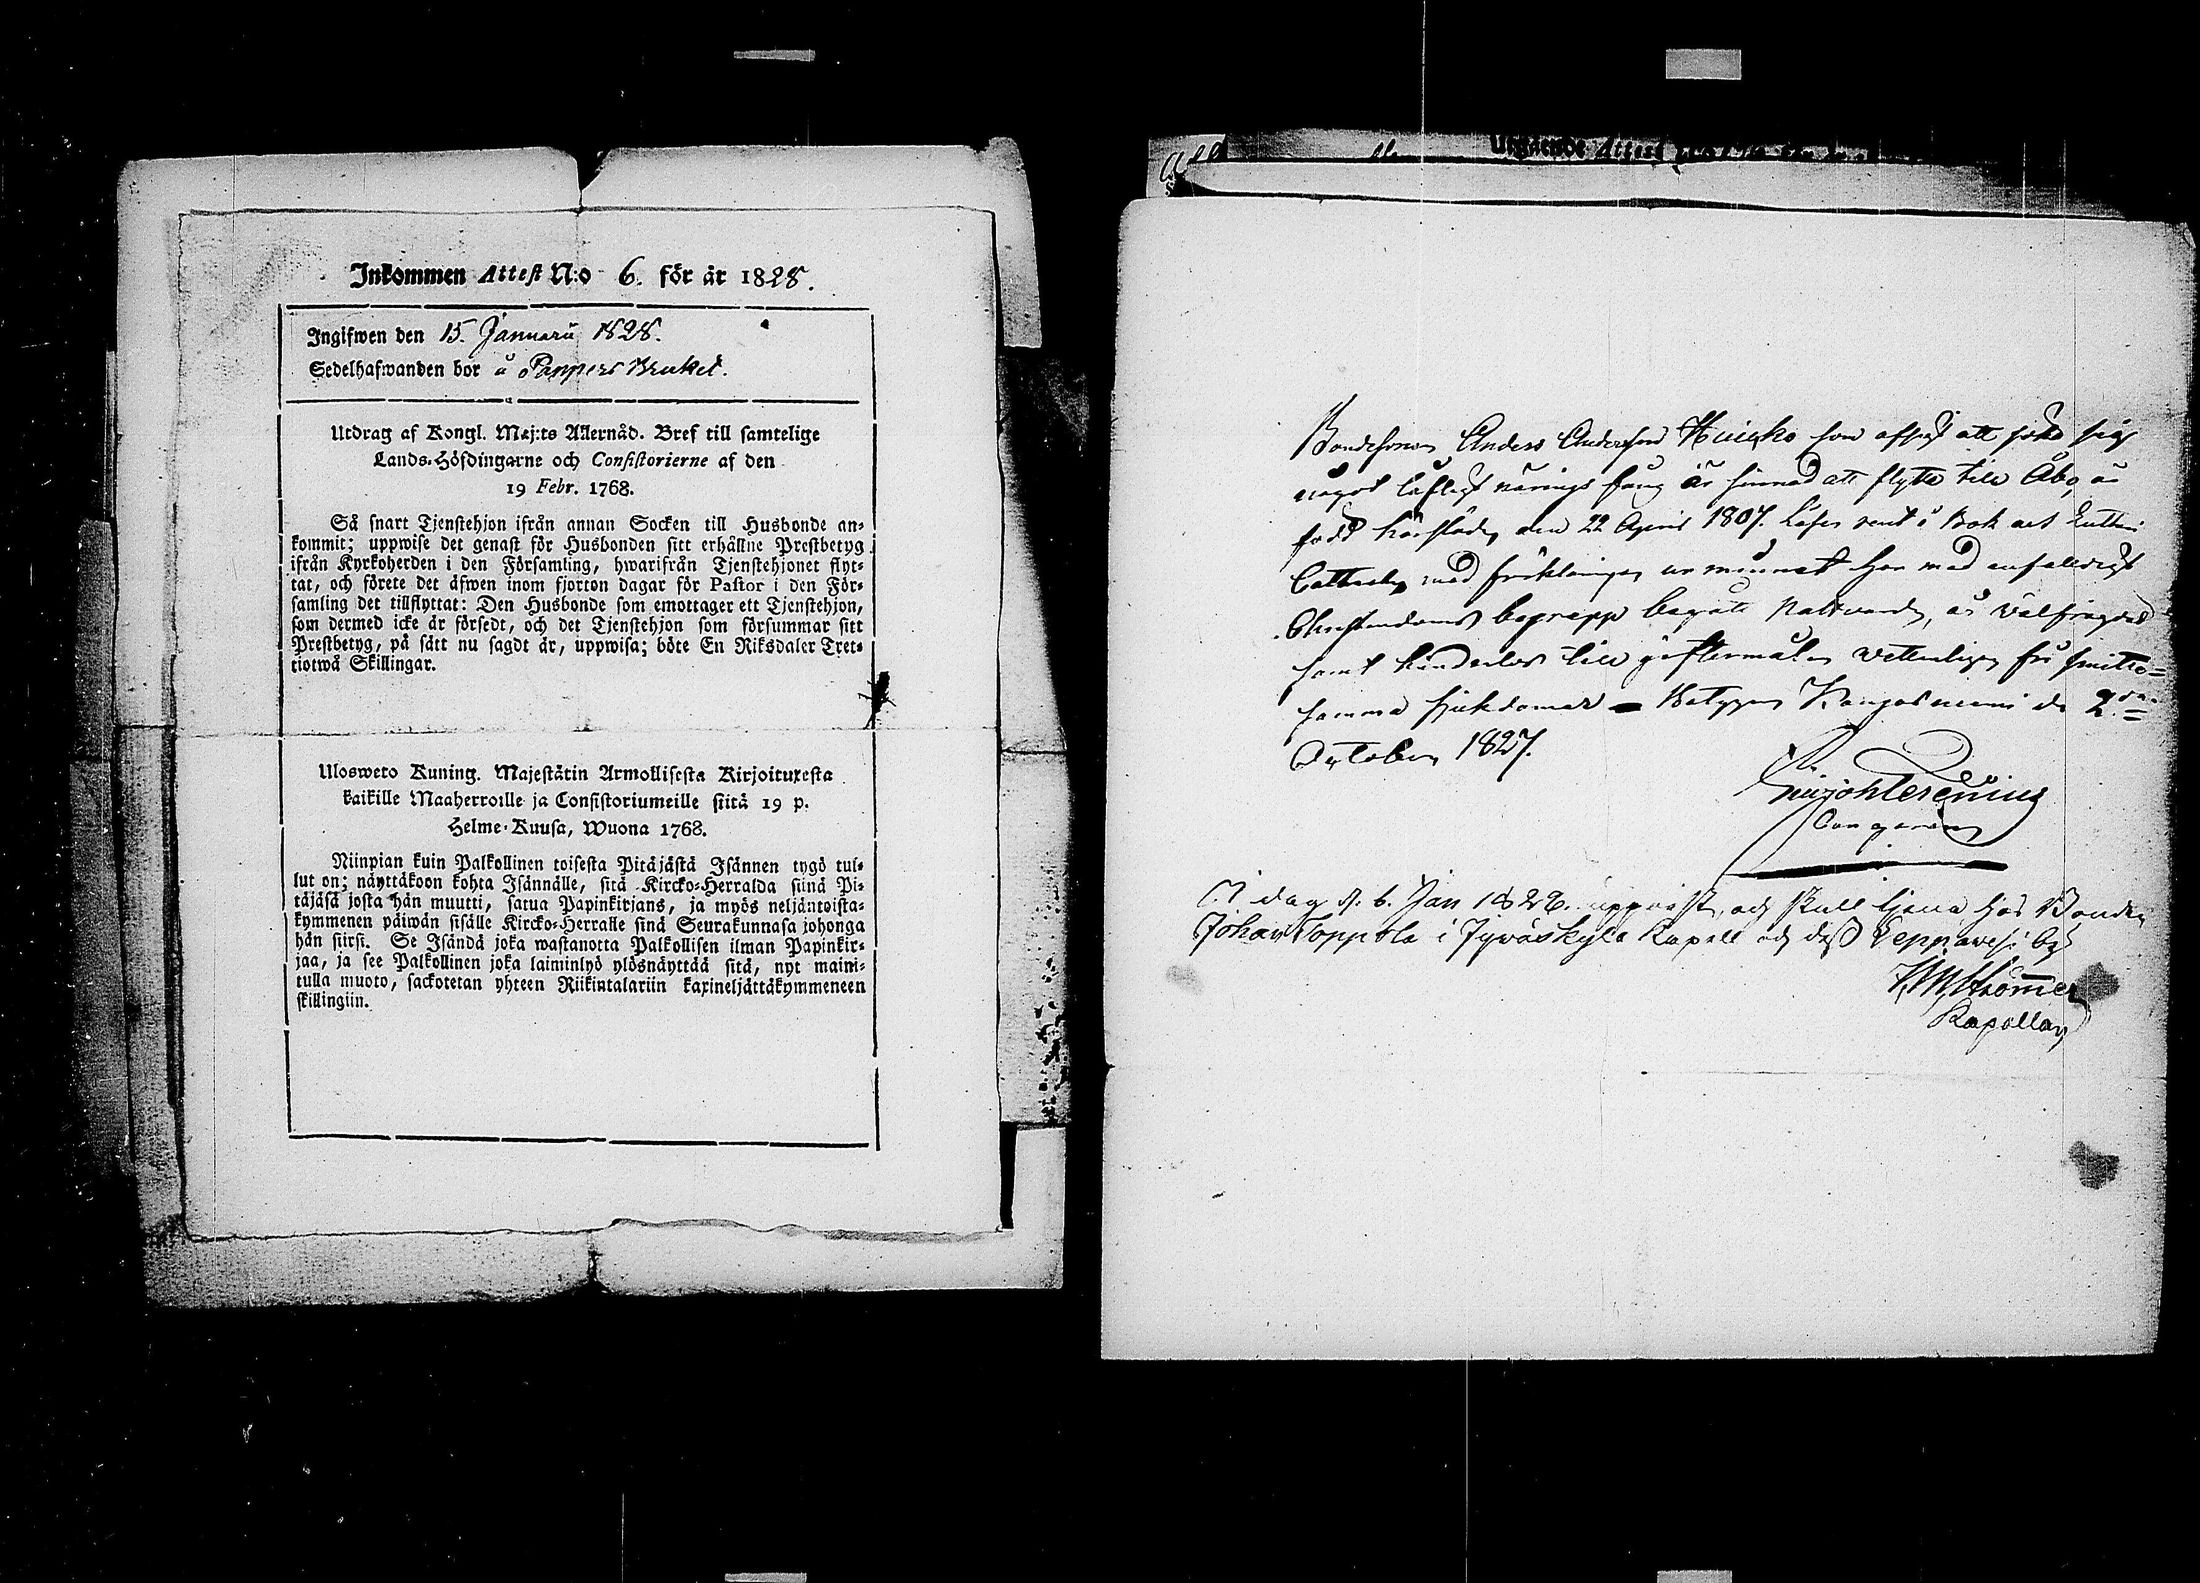 Inkommen Attest N:o 6. för år 1828.
Ingifwen den 15. Januarii 1828.
Sedelhafwanden bor å Pappers Bruket.
Utdrag af Kongl. Maj:ts Allernåd. Bref till samtelige
Lands-Höfdingarne och Consistorierne af den
19 Febr. 1768.
Så snart Tjenstehjon ifrån annan Socken till Husbonde an-
kommit; uppwise det genast för Husbonden sitt erhållne Prestbetyg
ifrån Kyrkoherden i den Församling, hwarifrån Tjenstehjonet flyt-
tat, och förete det äfwen inom fjorton dagar för Pastor i den För-
samling det tillflyttat: Den Husbonde som emottager ett Tjenstehjon,
som dermed icke är försedt, och det Tjenstehjon som försummar sitt
Prestbetyg, på sätt nu sagdt är, uppwisa; böte En Riksdaler Tret-
tiotwå Skillingar.
Ulosweto Kuning. Majestätin Armollisesta Kirjoituxesta
kaikille Maaherroille ja Consistoriumeille siitä 19 p.
Helme-Kuusa, Wuona 1768.
Niinpian kuin Palkollinen toisesta Pitäjästä Isännen tygö tul-
lut on; näyttäkoon kohta Isännälle, sitä Kircko-Herralda siinä Pi-
täjäsä josta hän muutti, saatua Papinkirjans, ja myös neljäntoista-
kymmenen päiwän sisälle Kircko-Herralle siinä Seurakunnasa johonga
hän siirsi. Se Isändä joka wastanotta Palkollisen ilman Papinkir-
jaa, ja see Palkollinen joka laiminlyö ylösnäyttää sitä, nyt maini-
tulla muoto, sackotetan yhteen Riikintalariin kaxineljättäkymmeneen
skillingiin.
Utgående Attest
Bondesonen Anders Andersson Huicko som afsigt att söka sig
något lofligt närings fång är sinnad att flytta till Åbo, är
född härstädes den 22 April 1807. Läser rent i Bok och Lutheri
Cateches med förklaringen ur minnet har med
Christendoms begrepp begått Nattvarden, är välfrägdad
samt hinderlös till giftermål, veterligen fri smitto-
samma sjukdomar – Betygar Kangasniemi d. 2dra
October 1827.
I dag d. 6. Jan 1828. uppvist, och skall tjena hos Bonden
Johan Toppola i Jyväskylä Kapell och dess Leppävesi by
Kapellan